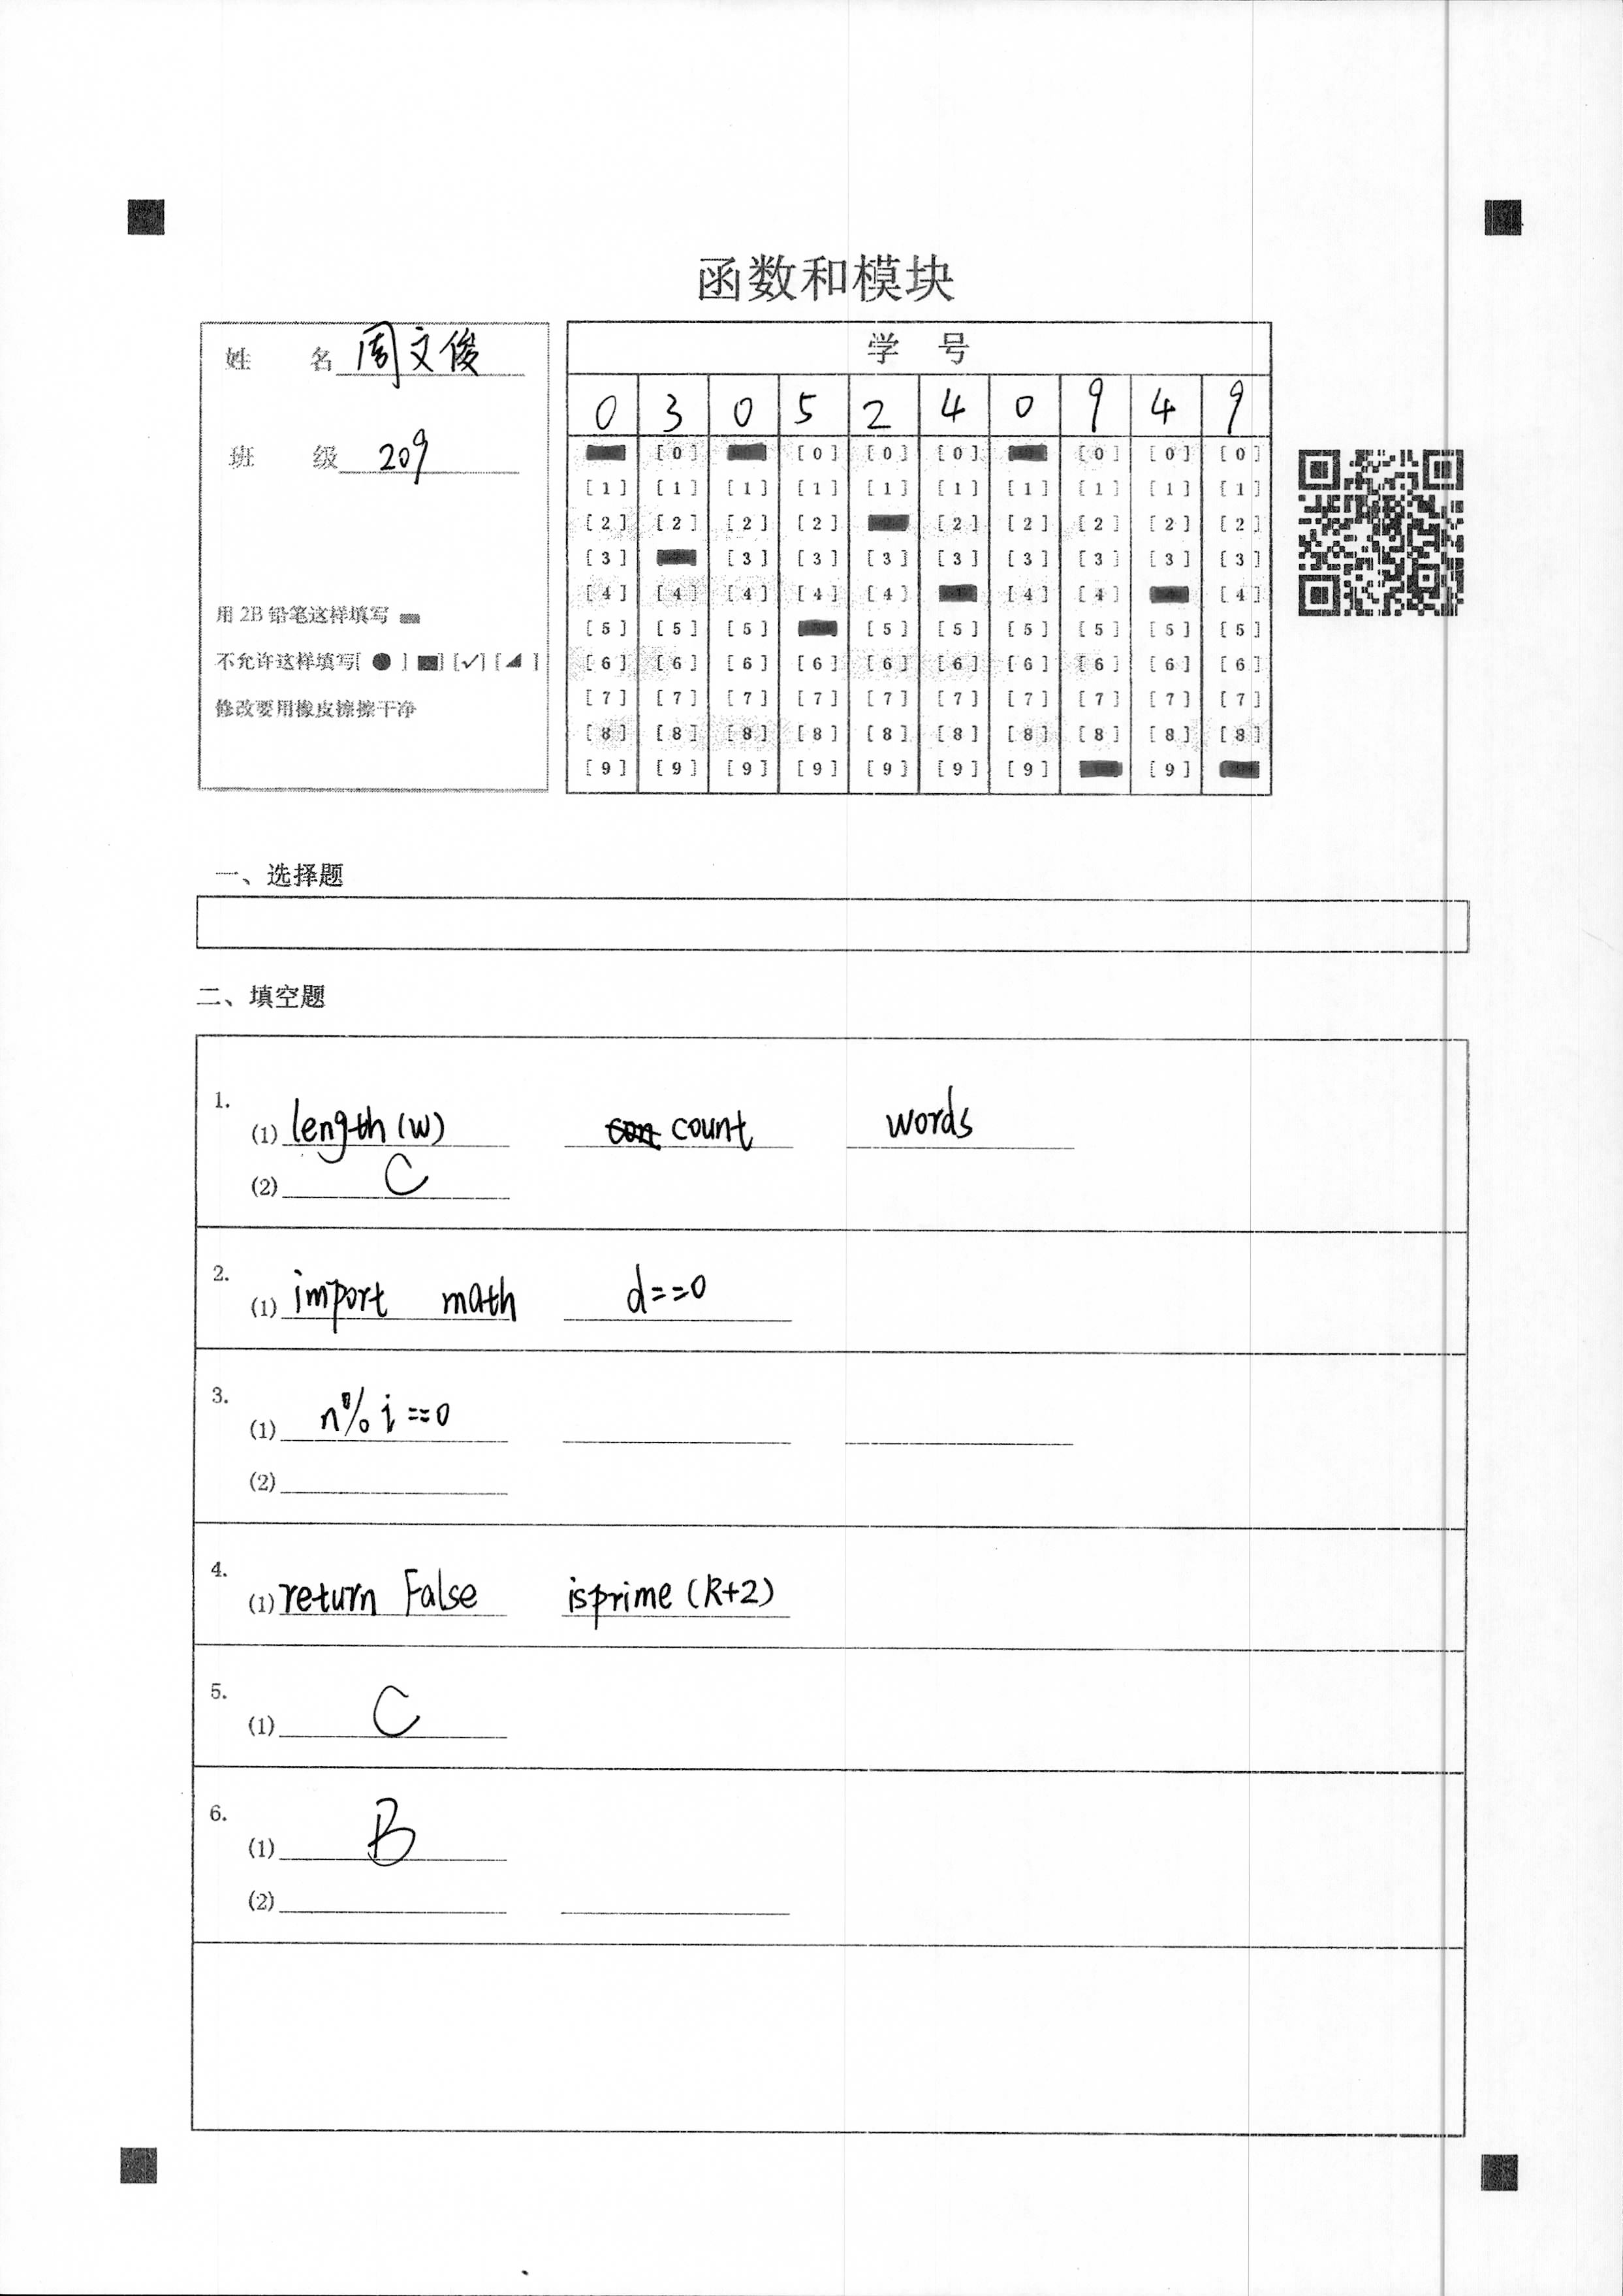 函数和模块
姓 名 周文俊
班 级 209
用 2B 铅笔这样填写
不允许这样填写[ ● ] [■] [✓] [◢ ]
修改要用橡皮擦擦干净
学 号
0 3 0 5 2 4 0 9 4 9
[0] [0] [0] [0] [0] [0] [0]
[1] [1] [1] [1] [1] [1] [1] [1] [1] [1]
[2] [2] [2] [2] [2] [2] [2] [2] [2]
[3] [3] [3] [3] [3] [3] [3] [3] [3]
[4] [4] [4] [4] [4] [4] [4] [4]
[5] [5] [5] [5] [5] [5] [5] [5] [5]
[6] [6] [6] [6] [6] [6] [6] [6] [6] [6]
[7] [7] [7] [7] [7] [7] [7] [7] [7] [7]
[8] [8] [8] [8] [8] [8] [8] [8] [8] [8]
[9] [9] [9] [9] [9] [9] [9] [9]
一、选择题
二、填空题
1.
(1) length(w) count words
(2) C
2.
(1) import math d==0
3.
(1) n%i==0
(2)
4.
(1) return False isprime(k+2)
5.
(1) C
6.
(1) B
(2)